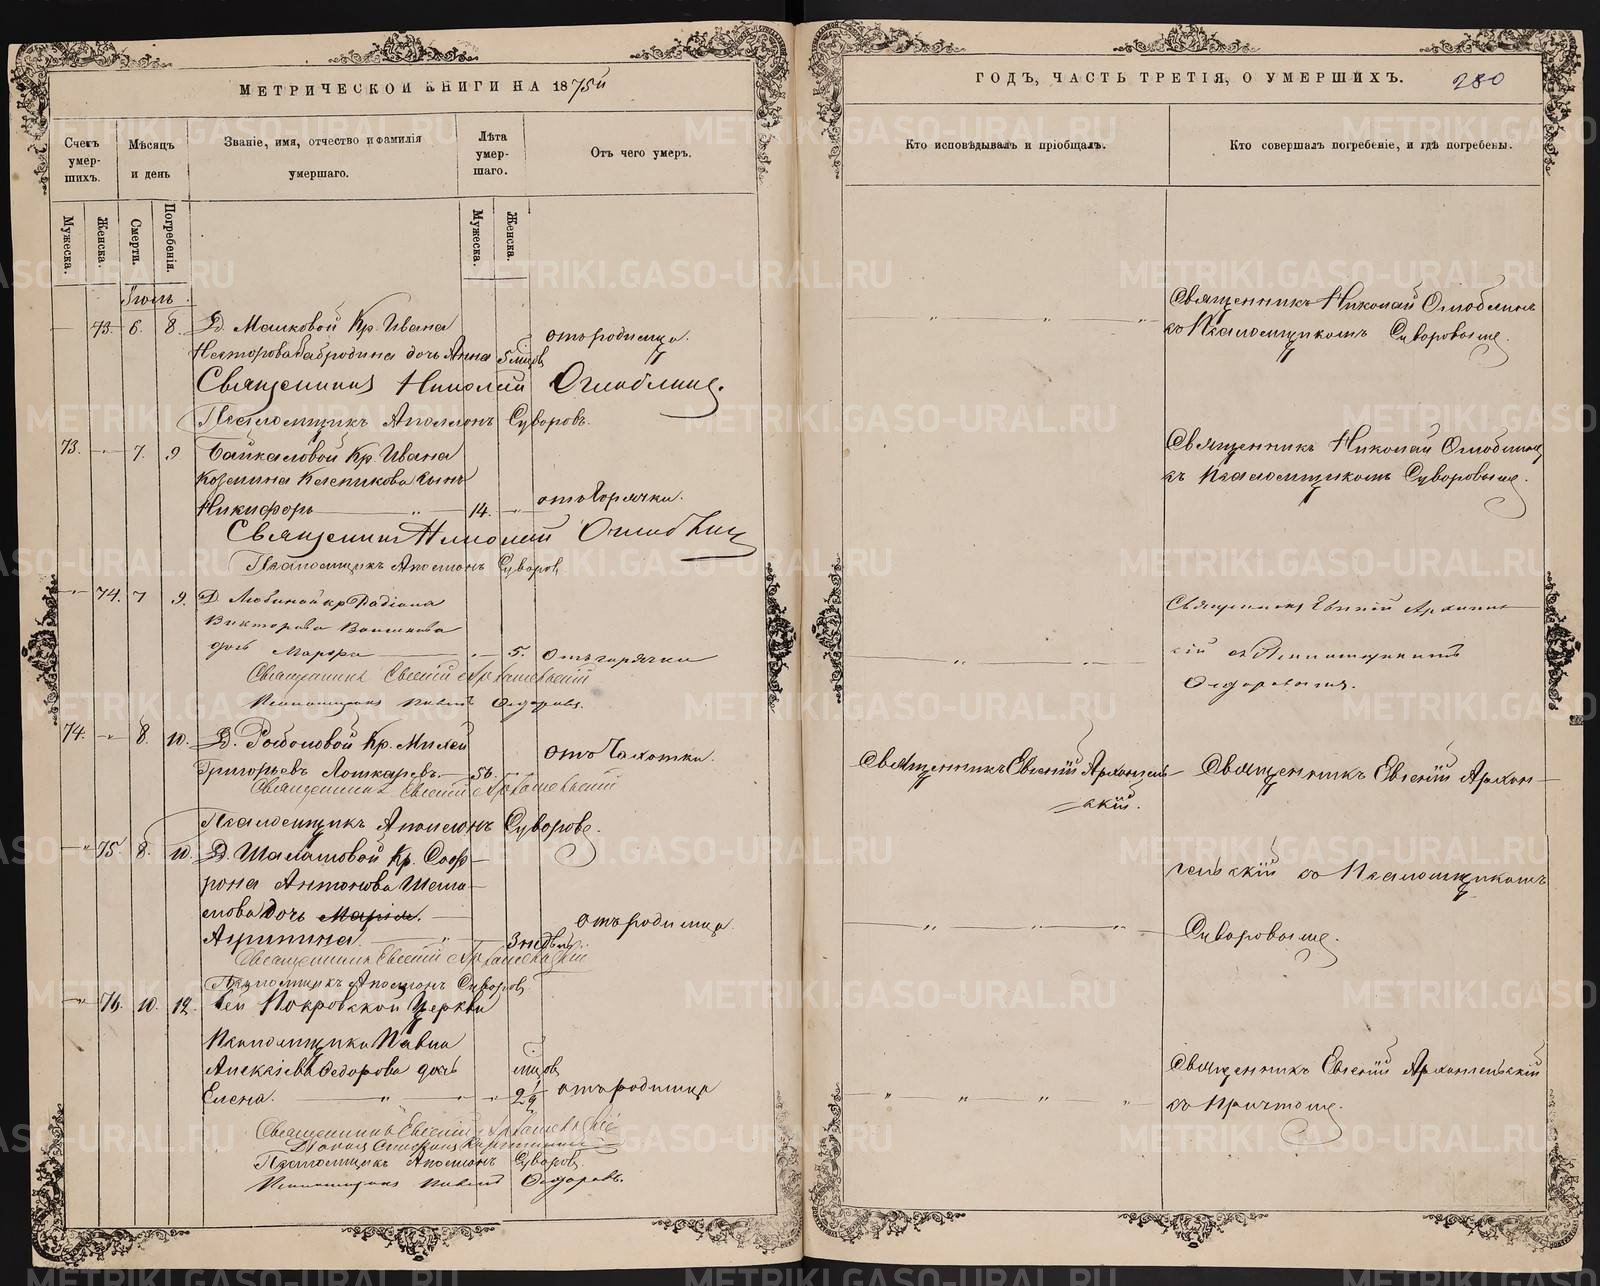 МЕТРИЧЕСКОЙ КНИГИ НА 1875й
Счетъ умер-шихъ.
Мѣсяцъ и день
Званіе, имя, отчество и фамилія умершаго.
Лѣта умер-шаго.
Отъ чего умеръ.
Мужеска.
Женска.
Смерти.
Погребенія.
Мужеска.
Женска.
Іюль.
73. 6. 8. Д. Маиковой Кр. Ивана
Несторова Забродина дочь Анна 5 мцовъ отъ родимца.
Священникъ Николай Оглоблинъ.
Псаломщикъ Аполлонъ Суворовъ.
73. 7. 9 Байкаловой Кр. Ивана
Козмина сынъ
Никифоръ 14. отъ Горячки.
Священникъ Николай Оглоблинъ
Псаломщикъ Аполлонъ Суворовъ
74. 7 9. Д. кр Радіона
Викторова
дочь Марфа 5. Отъ горячки
Священникъ Евгеній Архангельскій
Псаломщикъ Павелъ Ѳедоровъ.
74. 8. 10. Д. Кр. Михей
Григорьевъ Лошкаревъ. 56. отъ Чахотки.
Священникъ Евгеній Архангельскій
Псаломщикъ Аполлонъ Суворовъ.
75. 8. 10. Д. Шаламовой Кр. Соф-
рона Антонова Шала-
мова дочь Марія.
Агрипина. 3 недѣли отъ родимца
Священникъ Евгеній Архангельскій
Псаломщикъ Аполлонъ Суворовъ
76. 10. 12. Сей Покровской Церкви
Псаломщика Павла
Алексіева Ѳедорова дочь мцовъ
Елена. 2½ отъ родимца
Священникъ Евгеній Архангельскій
Псаломщикъ Аполлонъ Суворовъ
Псаломщикъ Павелъ Ѳедоровъ.
ГОДЪ, ЧАСТЬ ТРЕТІЯ, О УМЕРШИХЪ. 280
Кто исповѣдывалъ и пріобщалъ.
Кто совершалъ погребеніе, и гдѣ погребены.
Священникъ Николай Оглоблинъ
съ Псаломщикомъ Суворовымъ.
Священникъ Николай Оглоблинъ
съ Псаломщикомъ Суворовымъ.
Священникъ Евгеній Архангель-
скій съ Псаломщикомъ
Ѳедоровымъ.
Священникъ Евгеній Архангель-
скій.
Священникъ Евгеній Архан-
гельскій съ Псаломщикомъ
Суворовымъ.
Священникъ Евгеній Архангельскій
съ Причтомъ.
METRIKI.GASO-URAL.RU